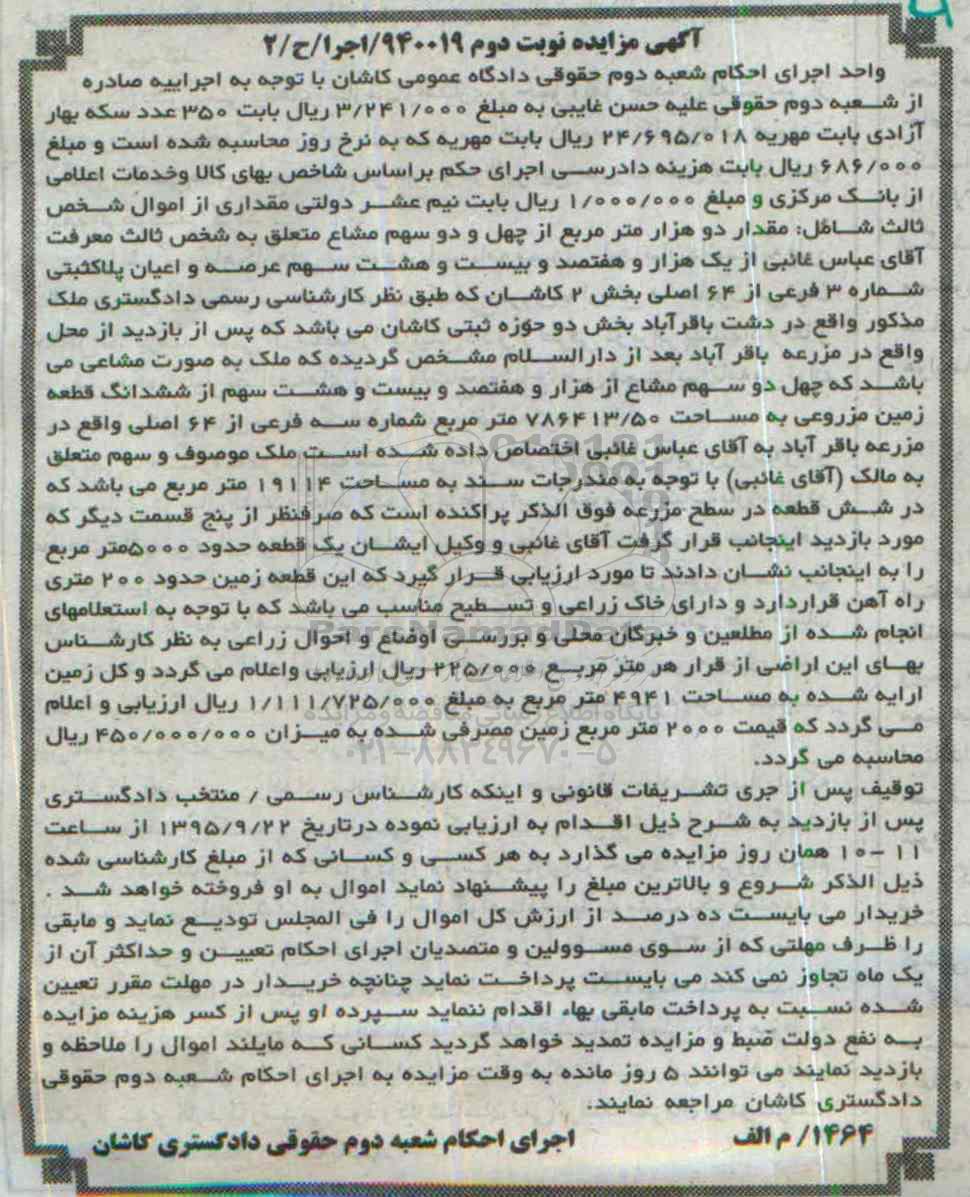 آگهی مزایده نوبت دوم ۹۴۰۰۱۹/اجرا/ح/۲
واحد اجرای احکام شعبه دوم حقوقی دادگاه عمومی کاشان با توجه به اجراییه صادره
از شعبه دوم حقوقی علیه حسن غایبی به مبلغ ۳/۲۴۱/۰۰۰ ریال بابت ۳۵۰ عدد سکه بهار
آزادی بابت مهریه ۲۴/۶۹۵/۰۱۸ ریال بابت مهریه که به نرخ روز محاسبه شده است و مبلغ
۶۸۶/۰۰۰ ریال بابت هزینه دادرسی اجرای حکم براساس شاخص بهای کالا وخدمات اعلامی
از بانک مرکزی و مبلغ ۱/۰۰۰/۰۰۰ ریال بابت نیم عشر دولتی مقداری از اموال شخص
ثالث شامل: مقدار دو هزار متر مربع از چهل و دو سهم مشاع متعلق به شخص ثالث معرفت
آقای عباس غائبی از یک هزار و هفتصد و بیست و هشت سهم عرصه و اعیان پلاکثبتی
شماره ۳ فرعی از ۶۴ اصلی بخش ۲ کاشان که طبق نظر کارشناسی رسمی دادگستری ملک
مذکور واقع در دشت باقرآباد بخش دو حوزه ثبتی کاشان می باشد که پس از بازدید از محل
واقع در مزرعه باقر آباد بعد از دارالسلام مشخص گردیده که ملک به صورت مشاعی می
باشد که چهل دو سهم مشاع از هزار و هفتصد و بیست و هشت سهم از ششدانگ قطعه
زمین مزروعی به مساحت ۷۸۶۴۱۳/۵۰ متر مربع شماره سه فرعی از ۶۴ اصلی واقع در
مزرعه باقر آباد به آقای عباس غائبی اختصاص داده شده است ملک موصوف و سهم متعلق
به مالک (آقای غائبی) با توجه به مندرجات سند به مساحت ۱۹۱۱۴ متر مربع می باشد که
در شش قطعه در سطح مزرعه فوق الذکر پراکنده است که صرفنظر از پنج قسمت دیگر که
مورد بازدید اینجانب قرار گرفت آقای غائبی و وکیل ایشان یک قطعه حدود ۵۰۰۰متر مربع
را به اینجانب نشان دادند تا مورد ارزیابی قرار گیرد که این قطعه زمین حدود ۲۰۰ متری
راه آهن قراردارد و دارای خاک زراعی و تسطیح مناسب می باشد که با توجه به استعلامهای
انجام شده از مطلعین و خبرگان محلی و بررسی اوضاع و احوال زراعی به نظر کارشناس
بهای این اراضی از قرار هر متر مربع ۲۲۵/۰۰۰ ریال ارزیابی واعلام می گردد و کل زمین
ارایه شده به مساحت ۴۹۴۱ متر مربع به مبلغ ۱/۱۱۱/۷۲۵/۰۰۰ ریال ارزیابی و اعلام
می گردد که قیمت ۲۰۰۰ متر مربع زمین مصرفی شده به میزان ۴۵۰/۰۰۰/۰۰۰ ریال
محاسبه می گردد.
توقیف پس از جری تشریفات قانونی و اینکه کارشناس رسمی / منتخب دادگستری
پس از بازدید به شرح ذیل اقدام به ارزیابی نموده درتاریخ ۱۳۹۵/۹/۲۲ از ساعت
۱۱ -۱۰ همان روز مزایده می گذارد به هر کسی و کسانی که از مبلغ کارشناسی شده
ذیل الذکر شروع و بالاترین مبلغ را پیشنهاد نماید اموال به او فروخته خواهد شد .
خریدار می بایست ده درصد از ارزش کل اموال را فی المجلس تودیع نماید و مابقی
را ظرف مهلتی که از سوی مسوولین و متصدیان اجرای احکام تعیین و حداکثر آن از
یک ماه تجاوز نمی کند می بایست پرداخت نماید چنانچه خریدار در مهلت مقرر تعیین
شده نسبت به پرداخت مابقی بهاء اقدام ننماید سپرده او پس از کسر هزینه مزایده
به نفع دولت ضبط و مزایده تمدید خواهد گردید کسانی که مایلند اموال را ملاحظه و
بازدید نمایند می توانند ۵ روز مانده به وقت مزایده به اجرای احکام شعبه دوم حقوقی
دادگستری کاشان مراجعه نمایند.
۱۴۶۴/ م الف اجرای احکام شعبه دوم حقوقی دادگستری کاشان
ParsNamadData
پایگاه اطلاع رسانی مناقصه و مزایده
۰۲۱-۸۸۳۴۹۶۷۰-۵